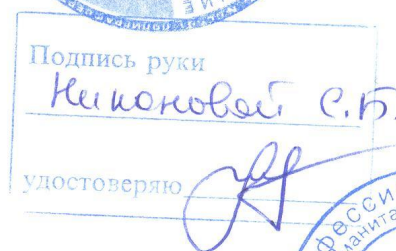 Подпись руки
Никоновой С.Б.
удостоверяю